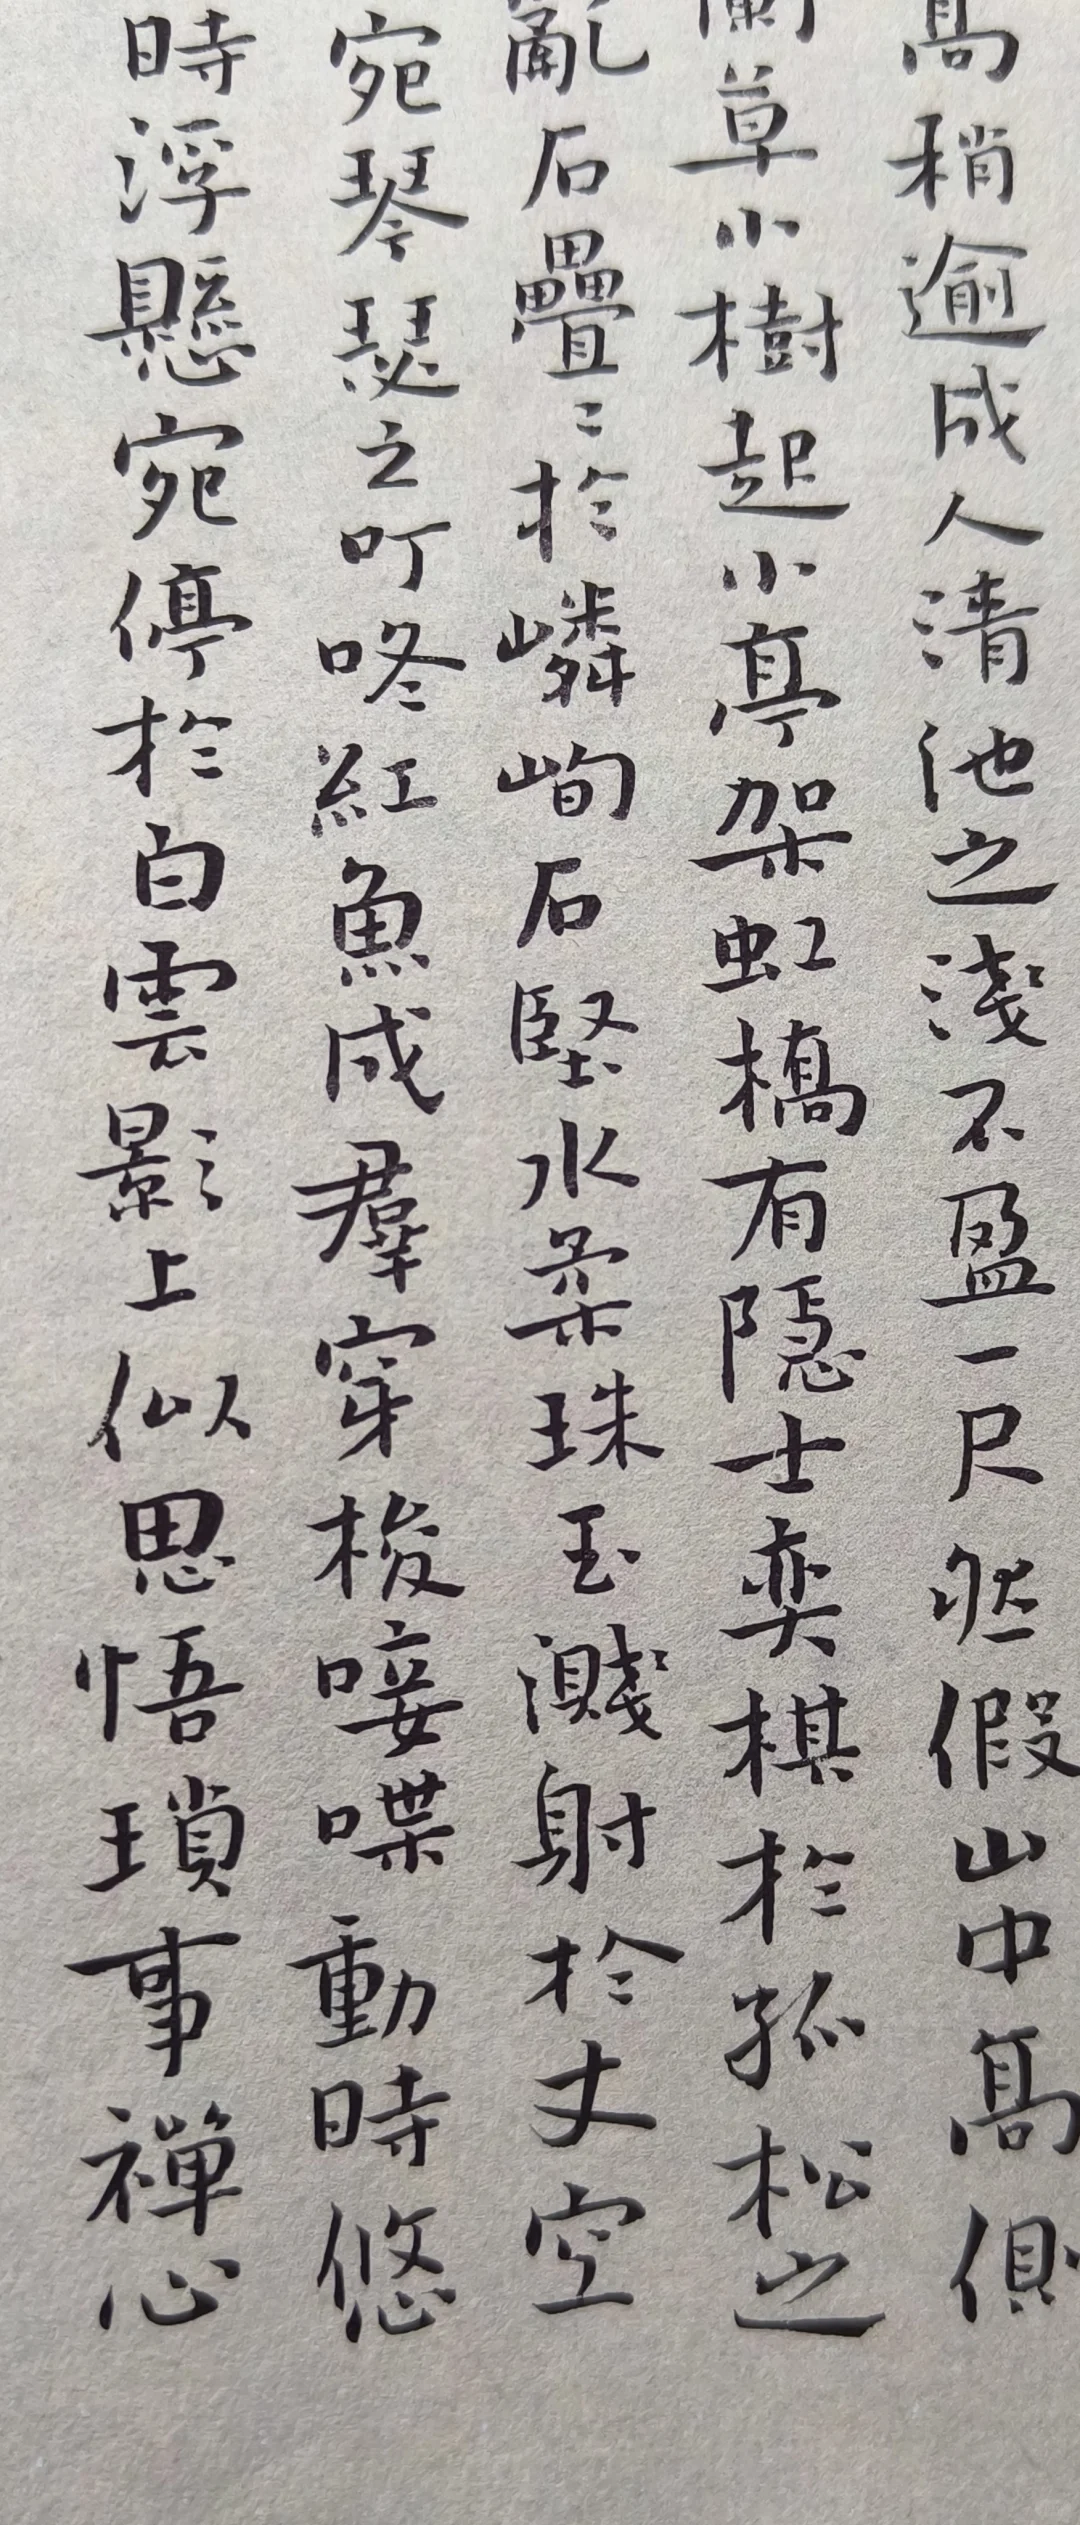 高稍逾成人清池之淺不盈一尺然假山中高俱
蘭草小樹起小亭架虹橋有隱士奕棋於孤松之
亂石疊〻於嶙峋石堅水柔珠玉濺射於丈空
宛琴瑟之叮咚紅魚成羣穿梭唼喋動時悠
時浮懸宛停於白雲影上似思悟瑣事禪心